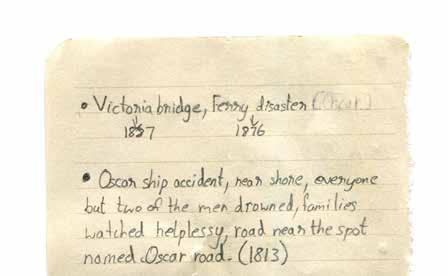 • Victoria bridge, Ferry disaster [Oscar]
1887 1876
• Oscar ship accident, near shore, everyone
but two of the men drowned, families
watched helplessy, road near the spot
named Oscar road. (1813)